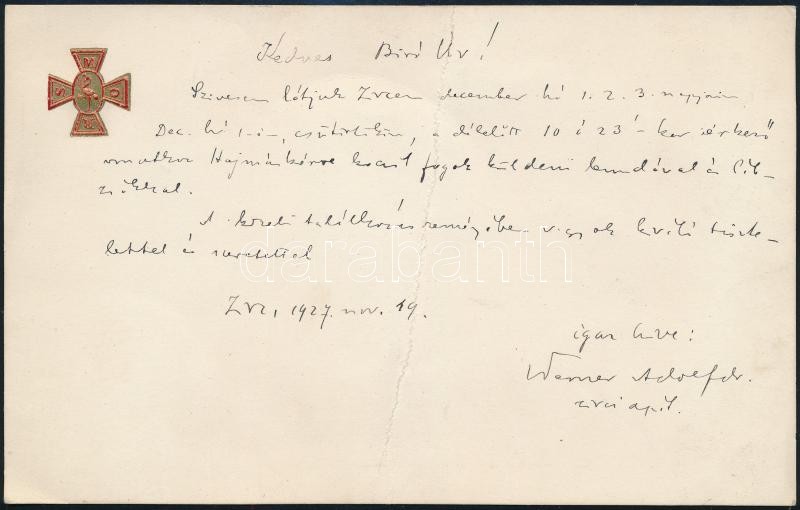 M
S O
R
Kedves Biró Úr!
Szivesen látjuk Zircen december hó 1. 2. 3. napjain
Dec. hó 1-én, csütörtökön, a délelőtt 10 ó 23'-kor érkező
vonatkor Hajmáskérre kocsit fogok küldeni bundával és láb-
zsákkal.
A közeli találkozás reményében vagyok kiváló tiszte-
lettel és szeretettel
Zirc, 1927. nov. 19.
igaz híve:
Werner Adolf dr.
zirci apát.
darabanth